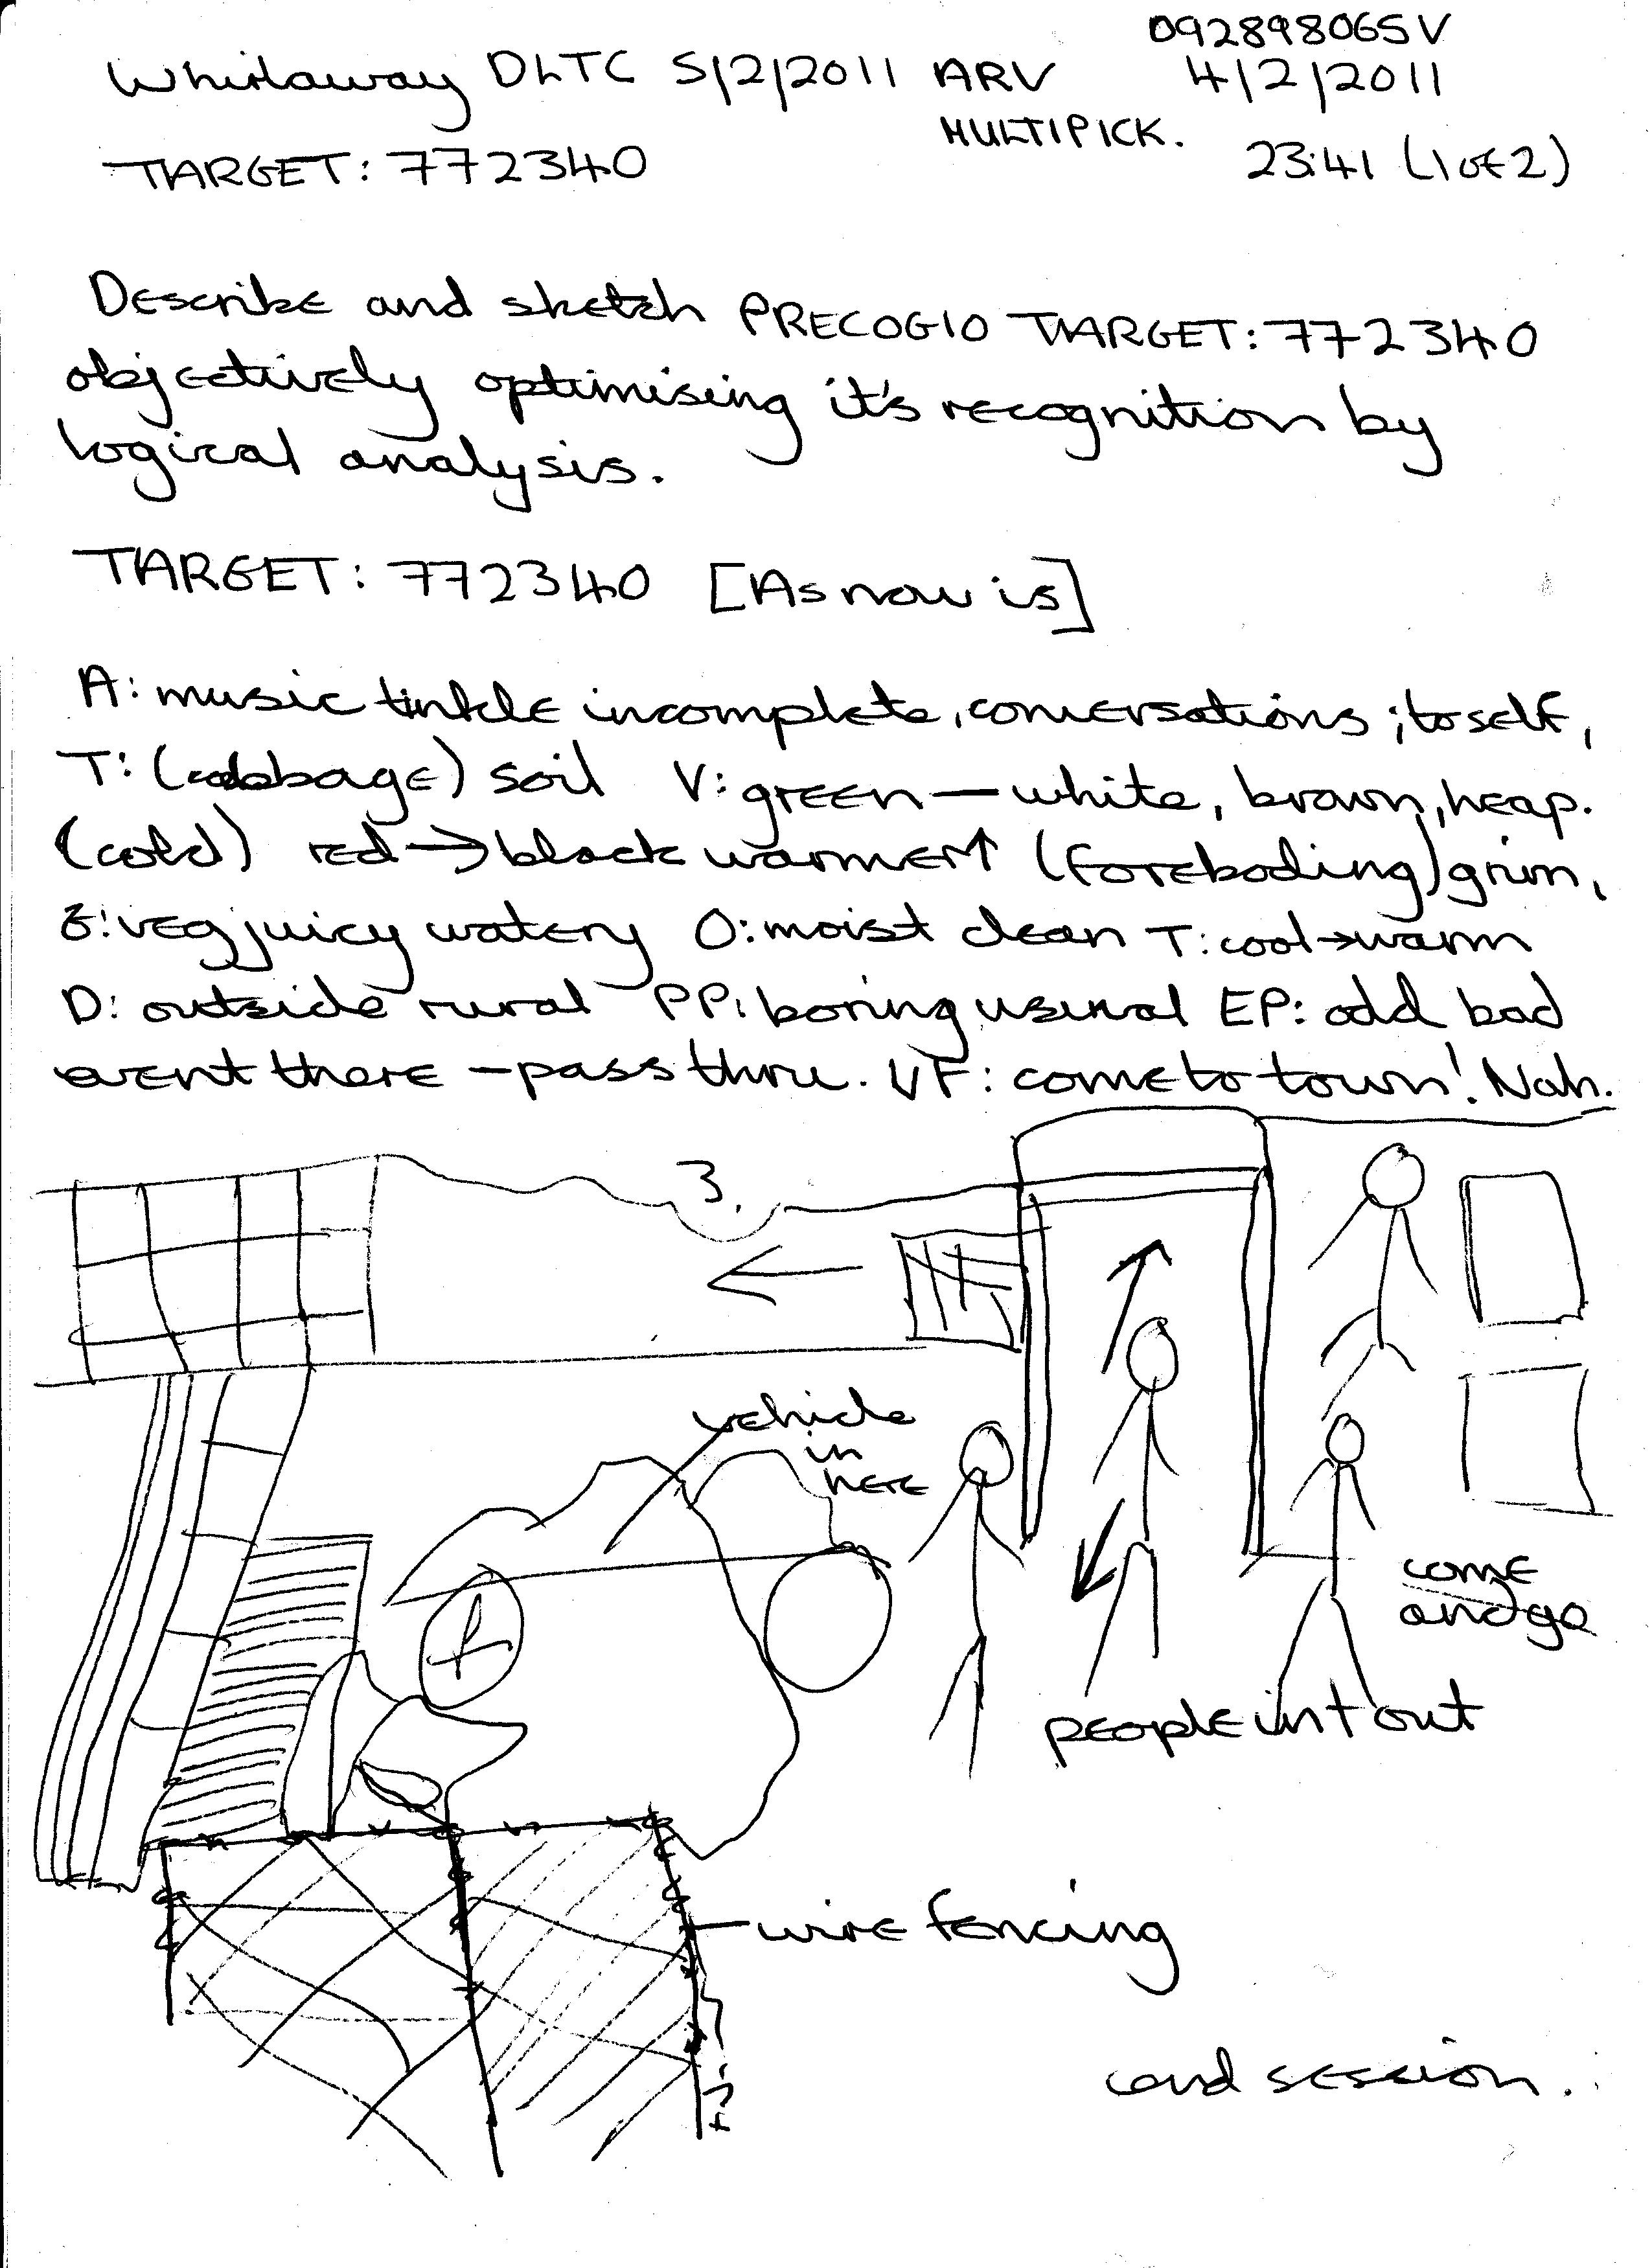 092898065V
Whirlaway DLTC 5/2/2011 ARV 4/2/2011
MULTIPICK.
TARGET: 772340 23:41 (1 of 2)
Describe and sketch PRECOG10 TARGET: 772340
objectively optimising it's recognition by
logical analysis.
TARGET: 772340 [As now is]
A: music tinkle incomplete, conversations ; to self,
T: (cabbage) soil V: green — white, brown, heap.
(cold) red → black warmer ↑ (foreboding) grim,
G: veg juicy watery O: moist clean T: cool → warm
D: outside rural PP: boring usual EP: odd bad
event there - pass thru. VF: come to town! Nah.
3.
vehicle
in
here
come
and go
people in + out
wire fencing
end session.